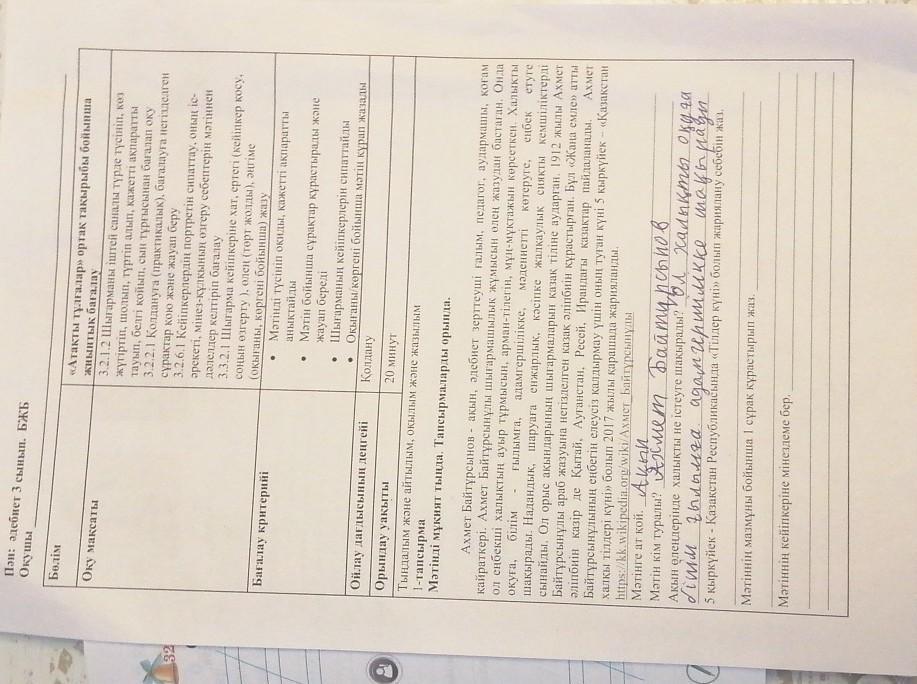 Пән: әдебиет 3 сынып. БЖБ
Оқушы
Бөлім
«Атақты тұлғалар» ортақ тақырыбы бойынша
жиынтық бағалау
Оқу мақсаты
3.2.1.2 Шығарманы іштей саналы түрде түсініп, көз
жүгіртіп, шолып, түртіп алып, қажетті ақпаратты
тауып, белгі қойып, сын тұрғысынан бағалап оқу
3.2.2.1 Қолдануға (практикалық), бағалауға негізделген
сұрақтар қою және жауап беру
3.2.6.1 Кейіпкерлердің портретін сипаттау, оның іс-
әрекеті, мінез-құлқының өзгеру себептерін мәтіннен
дәлелдер келтіріп бағалау
3.3.2.1 Шығарма кейіпкеріне хат, ертегі (кейіпкер қосу,
соңын өзгерту), өлең (төрт жолды), әңгіме
(оқығаны, көргені бойынша) жазу
Бағалау критерийі
• Мәтінді түсініп оқиды, қажетті ақпаратты
анықтайды
• Мәтін бойынша сұрақтар құрастырады және
жауап береді
• Шығарманың кейіпкерлерін сипаттайды
• Оқығаны/көргені бойынша мәтін құрап жазады
Ойлау дағдысының деңгейі
Қолдану
Орындау уақыты
20 минут
Тыңдалым және айтылым, оқылым және жазылым
1-тапсырма
Мәтінді мұқият тыңда. Тапсырмаларды орында.
Ахмет Байтұрсынов - ақын, әдебиет зерттеуші ғалым, педагог, аудармашы, қоғам
қайраткері. Ахмет Байтұрсынұлы шығармашылық жұмысын өлең жазудан бастаған. Онда
ол еңбекші халықтың ауыр тұрмысын, арман-тілегін, мұң-мұқтажын көрсеткен. Халықты
оқуға, білім - ғылымға, адамгершілікке, мәдениетті көтеруге, еңбек етуге
шақырады. Надандық, шаруаға енжарлық, кәсіпке жалқаулық сияқты кемшіліктерді
сынайды. Ол орыс ақындарының шығармаларын қазақ тіліне аударған. 1912 жылы Ахмет
Байтұрсынұлы араб жазуына негізделген қазақ әліпбиін құрастырған. Бұл «Жаңа емле» атты
әліпбиін қазір де Қытай, Ауғанстан, Ресей, Ирандағы қазақтар пайдаланады. Ахмет
Байтұрсынұлының еңбегін елеусіз қалдырмау үшін оның туған күні 5 қыркүйек – «Қазақстан
халқы тілдері күні» болып 2017 жылы қарашада жарияланды.
https://kk.wikipedia.org/wiki/Ахмет_Байтұрсынұлы
Мәтінге ат қой. Ақын
Мәтін кім туралы? Ахмет Байтұрсынов
Ақын өлеңдерінде халықты не істеуге шақырады? Ол халықты оқуға
білім ғылымға адамгершілікке шақырады
5 қыркүйек - Қазақстан Республикасында «Тілдер күні» болып жариялану себебін жаз.
Мәтіннің мазмұны бойынша 1 сұрақ құрастырып жаз.
Мәтіннің кейіпкеріне мінездеме бер.
32